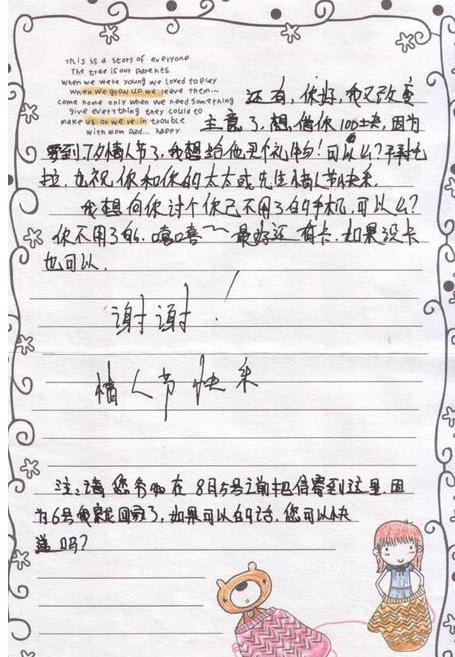 This is a story of everyone
The tree is our parents
When we were young we loved to play
When we grow up we leave them...
come home only when we need something
give everything they could to
make us or we're in trouble
with Mom Dad... happy
还有，你好，我又改变
主意了，想借你100块，因为
要到7夕情人节了，我想给他买个礼物！可以么？拜托
拉，也祝你和你的太太或先生情人节快乐.
我想向你讨个你已不用了的手机，可以么？
你不用了的，嘻嘻~~ 最好还有卡，如果没卡
也可以.
谢谢！
情人节快乐
注：请您务必在8月5号之前把信寄到这里，因
为6号我就回家了，如果可以的话，您可以快
递吗？